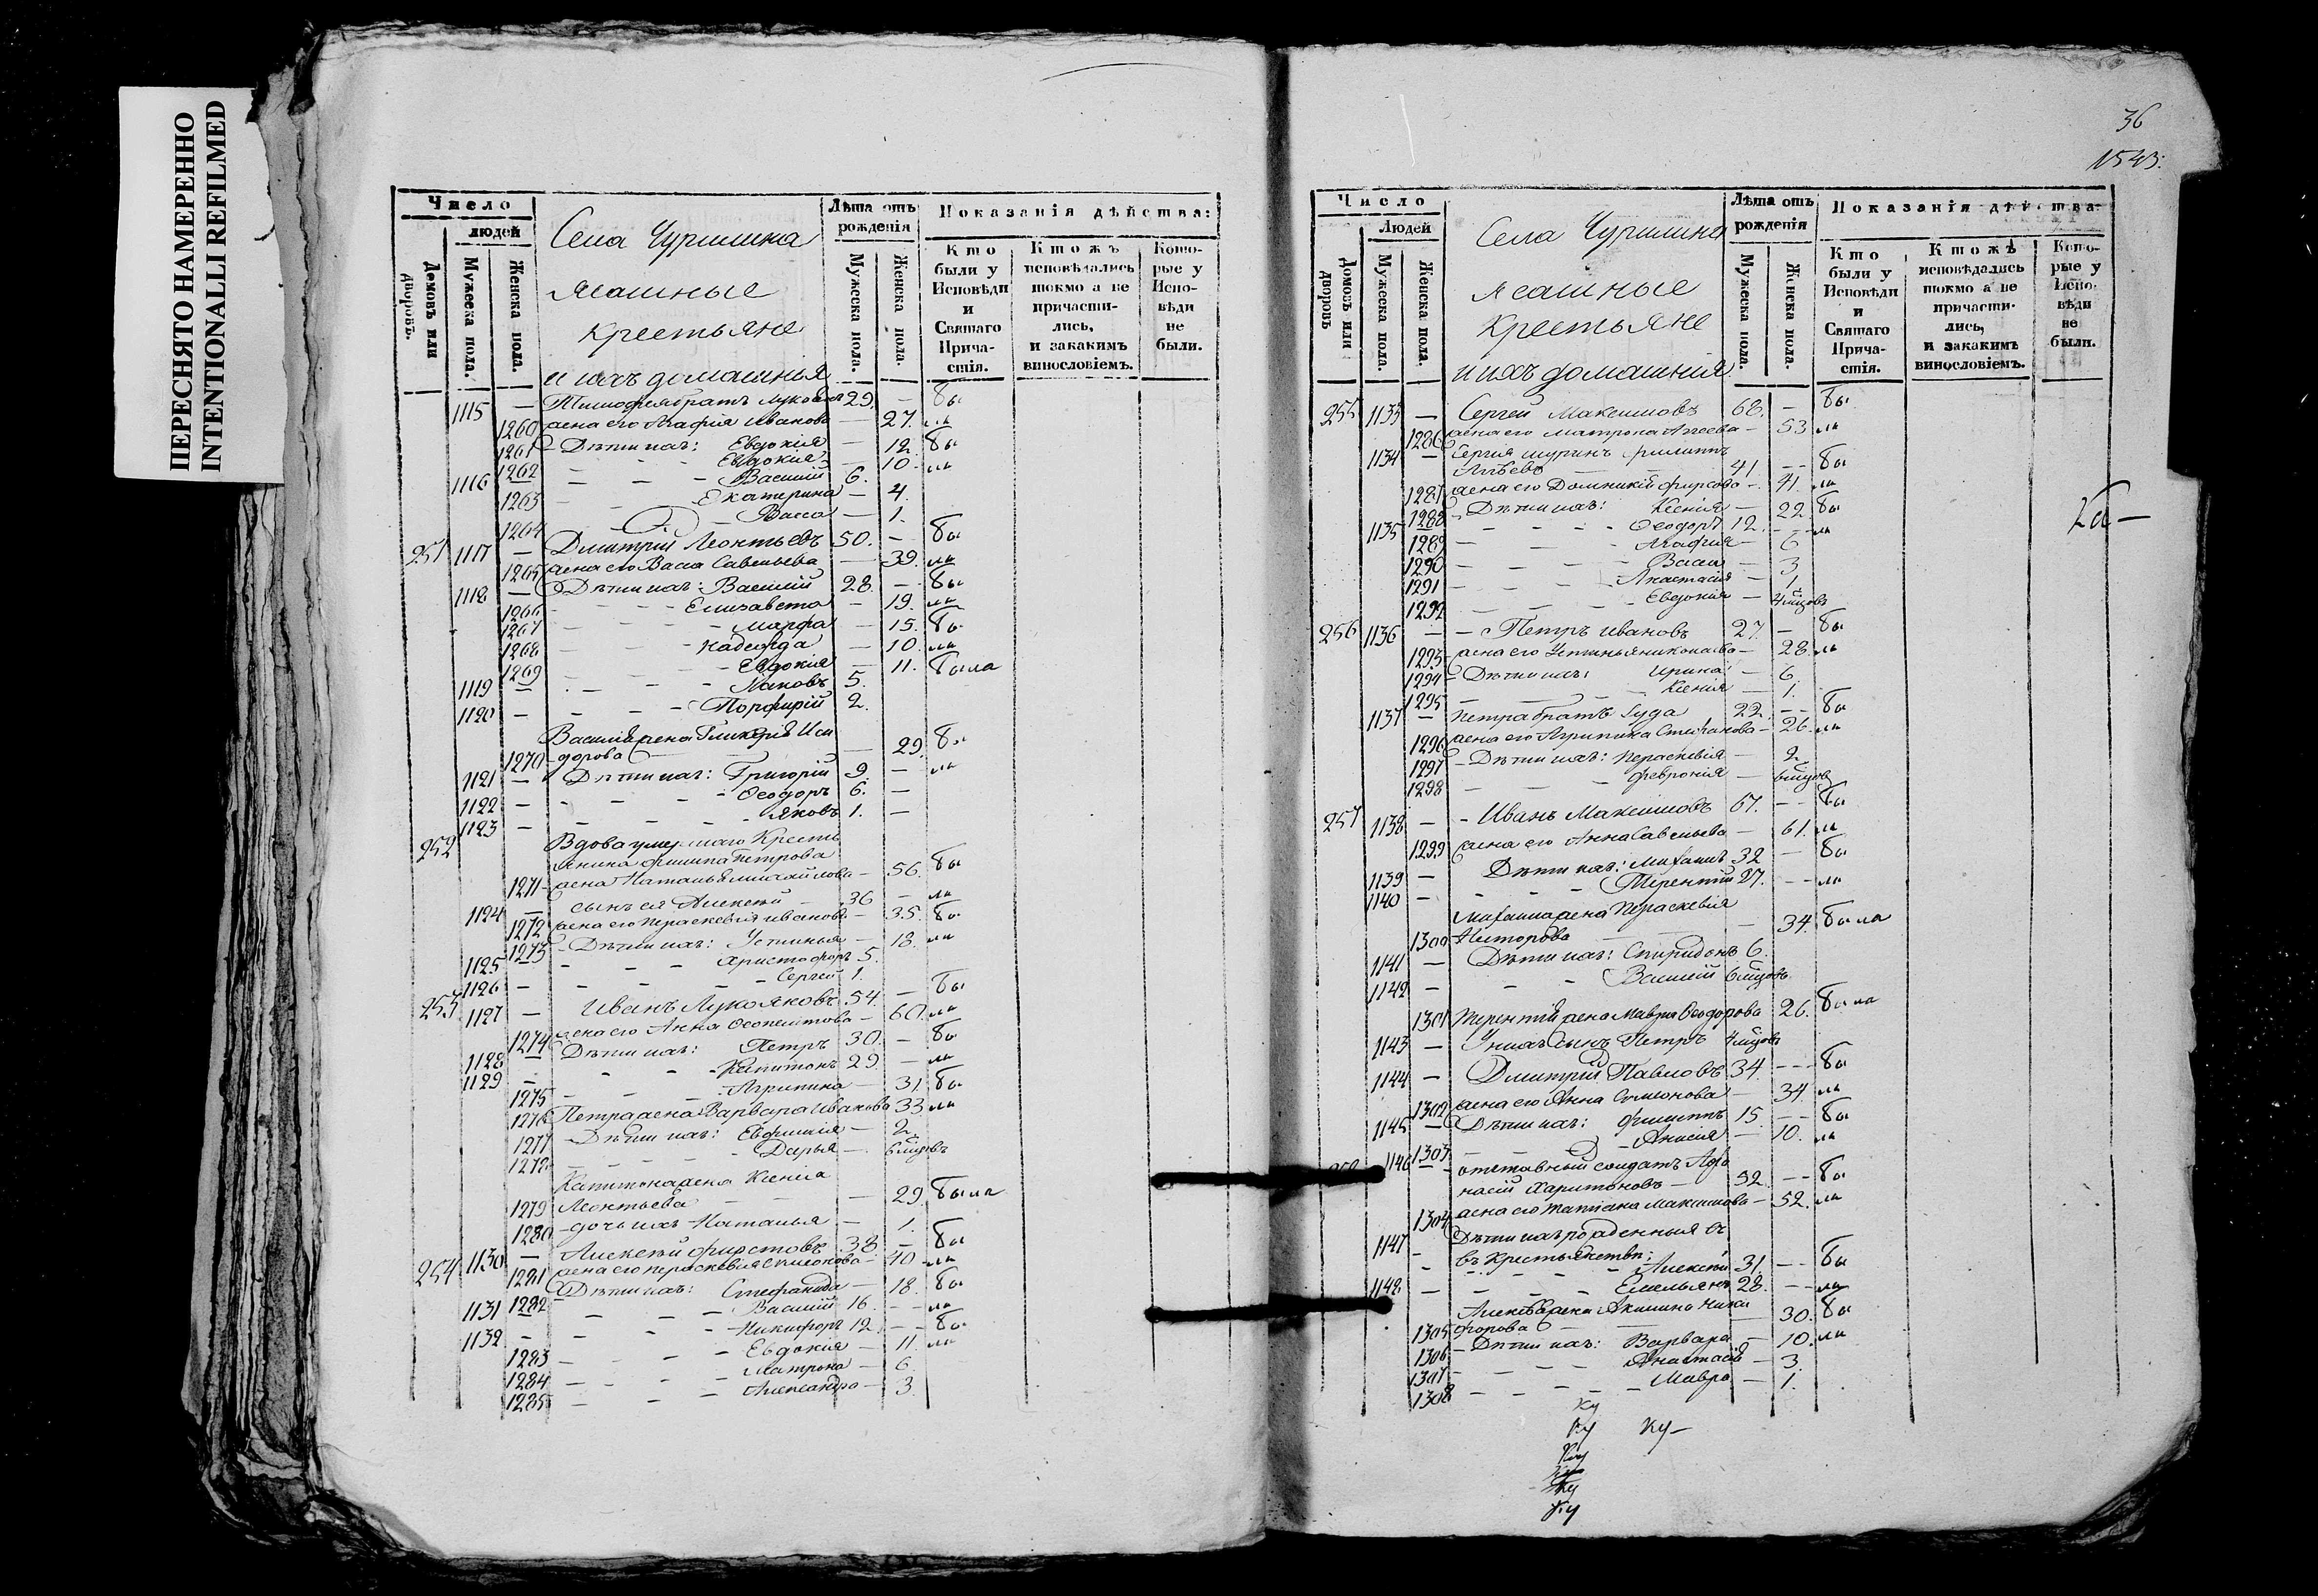 ПЕРЕСНЯТО НАМЕРЕННО
INTENTIONALLI REFILMED
Число
людей
Домовъ или дворовъ.
Мужеска пола.
Женска пола.
Села Чурилина
Ясашные
Крестьяне
и ихъ домашнiя
Лѣта отъ рожденія
Мужеска пола.
Женска пола.
Показанія дѣйства:
Кто были у Исповѣди и Святаго Прича- стія.
Ктожъ исповѣдались токмо а не причасти- лись, и закакимъ винословіемъ.
Кото- рые у Испо- вѣди не были.
1115 — Тимофея братъ 29. — бы
1260 жена его Агафія Иванова — 27. ли
1261 — Дѣти ихъ: Евдокія — 12. бы
1262 — Евдокія — 10. ли
1116 — Василій 6.
1263 — Екатерина — 4.
1264 — Васса — 1.
251 1117 — Дмитрій Леонтьевъ 50. — бы
1265 жена его Васса Савельева — 39. ли
1118 — Дѣти ихъ: Василій 28. — бы
1266 — Елизавета — 19. ли
1267 — Марфа — 15. бы
1268 — Надежда — 10. ли
1269 — Евдокія — 11. была
1119 — Іаковъ 5.
1120 — Порфирій 2.
Василія жена Гликерія Иси
1270 дорова — 29. бы
1121 — Дѣти ихъ: Григорій 9. — ли
1122 — Ѳеодоръ 6. —
1123 — Яковъ 1. —
252 Вдова умершаго Кресть
янина Филипа Петрова
1271 жена Наталья Михайлова — 56. бы
1124 — сынъ ея Алексѣй 36 — ли
1272 жена его Параскевія Иванова — 35. бы
1273 — Дѣти ихъ: Устинья — 18. ли
1125 — Христофоръ 5.
1126 — Сергей 1.
253 1127 — Иванъ Лукояновъ 54. — бы
1274 жена его Анна — 60. ли
1128 — Дѣти ихъ: Петръ 30. — бы
1129 — Капитонъ 29. — ли
1275 — Агрипина — 31. бы
1276 Петра жена Варвара Иванова 33 ли
1277 — Дѣти ихъ: Евфимія — 2.
1278 — Дарья — 6 мцовъ
Капитона жена Ксенія
1279 Леонтьева — 29. была
1280 — дочь ихъ Наталья — 1.
254 1130 — Алексѣй Фирстовъ 38. — бы
1281 жена его Параскевія Симонова — 40. ли
1282 Дѣти ихъ: Стефанида — 18. бы
1131 — Василій 16. — ли
1132 — Никифоръ 12. — бы
1283 — Евдокія — 11. ли
1284 — Матрона — 6.
1285 — Александра — 3.
36
1543.
Число
Людей
Домовъ или дворовъ
Мужеска пола.
Женска пола.
Села Чурилина
Ясашные
Крестьяне
и ихъ домашнiя
Лѣта отъ рожденія
Мужеска пола.
Женска пола.
Показанія дѣйства:
Кто были у Исповѣди и Святаго Прича- стія.
Ктожъ исповѣдались токмо а не причасти- лись, и закакимъ винословіемъ.
Кото- рые у Испо- вѣди не были.
255 1133 — Сергей Максимовъ 68. — бы
1286 жена его Матрона Агеева — 53 ли
1134 — Сергія шуринъ Филиппъ
41. — бы
1287 жена его Домникія Фирсова — 41. ли
1288 — Дѣти ихъ: Ксенія — 22. бы
1135 — Ѳеодоръ 12. — ли
1289 — Агафія — 6
1290 — Васса — 3
1291 — Анастасія — 1.
1292 — Евдокія — 4 мцовъ
256 1136 — Петръ Ивановъ 27. — бы
1293 жена его Устинья Николаева — 28. ли
1294 — Дѣти ихъ: Ирина — 6.
1295 — Ксенія — 1.
1137 — Петра братъ Іуда 22. — бы
1296 жена его Агрипина Стефанова — 26. ли
1297 — Дѣти ихъ: Параскевія — 2
1298 — Февронія — 6 мцовъ
257 1138 — Иванъ Максимовъ 67. — бы
1299 жена его Анна Савельева — 61. ли
1139 — Дѣти ихъ: Михаилъ 32 — бы
1140 — Терентій 27. — ли
Михаила жена Параскевія
1300 — 34. была
1141 — Дѣти ихъ: Спиридонъ 6.
1142 — Василій 6 мцовъ
1301 Терентія жена Мавра Ѳеодорова 26. была
1143 — У нихъ сынъ Петръ 4 мцовъ
1144 — Дмитрій Павловъ 34. — бы
1302 жена его Анна Симеонова — 34. ли
1145 — Дѣти ихъ: Филиппъ 15. — бы
1303 — Анисія — 10. ли
1146 — отставный солдатъ Афа
насій Харитоновъ — 52. — бы
1304 жена его Татіана Максимова — 52. ли
Дѣти ихъ рожденныя въ
1147 — въ Крестьянствѣ: Алексѣй 31. — бы
1148 — Емельянъ 28. — ли
Алексѣя жена Акилина Ники
1305 форова — 30. бы
1306 — Дѣти ихъ: Варвара — 10. ли
1307 — Анастасія — 3.
1308 — Мавра — 1.
ку
ку ку —
ку
ку
ку
ку